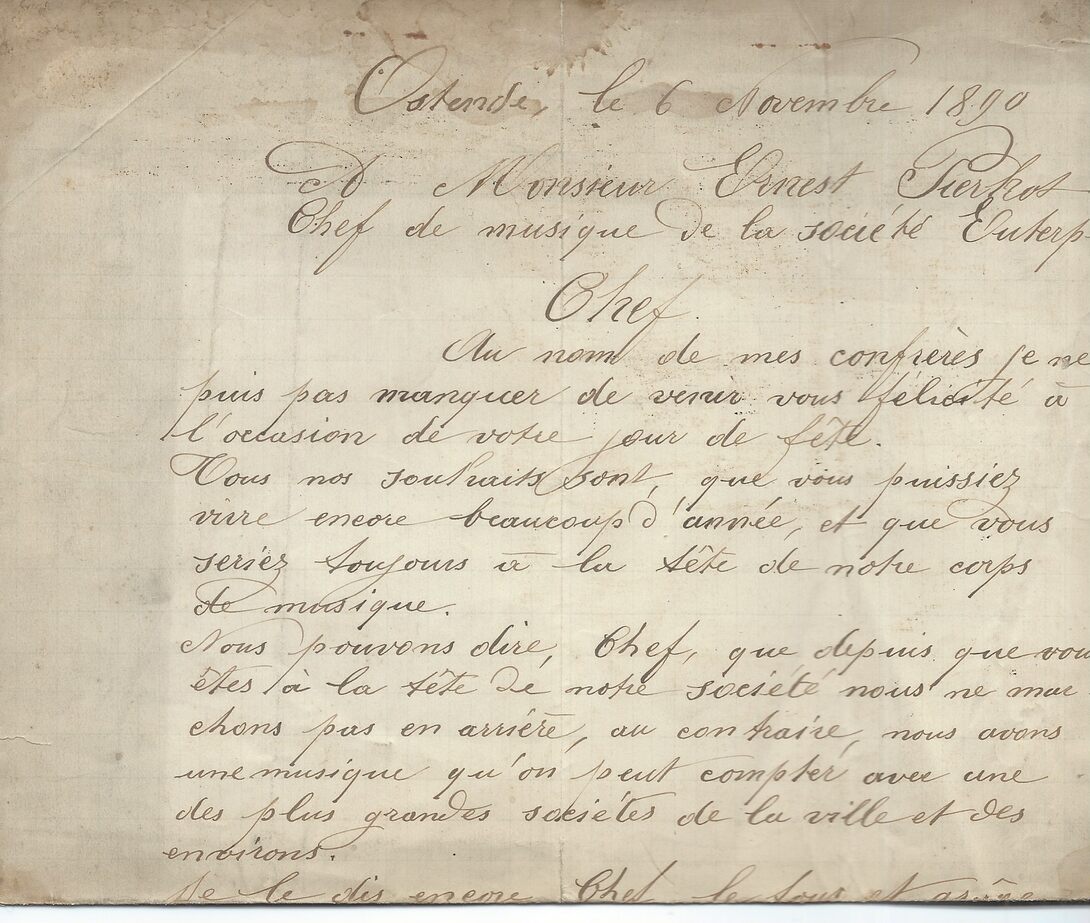 Ostende, le 6 Novembre 1890
A Monsieur Ernest Pierkot
Chef de musique de la société Euterp
Chef.
Au nom de mes confrères je ne
puis pas manquer de venir vous félicité à
l'occasion de votre jour de fête.
Tous nos souhaits sont, que vous puissiez
vivre encore beaucoup d'année, et que vous
seriez toujours à la tête de notre corps
de musique.
Nous pouvons dire, Chef, que depuis que vou
êtes à la tête de notre société nous ne mar
chons pas en arrière, au contraire, nous avons
une musique qu'on peut compter avec une
des plus grandes sociétes de la ville et des
environs.
Je le dis encore Chef le tout et